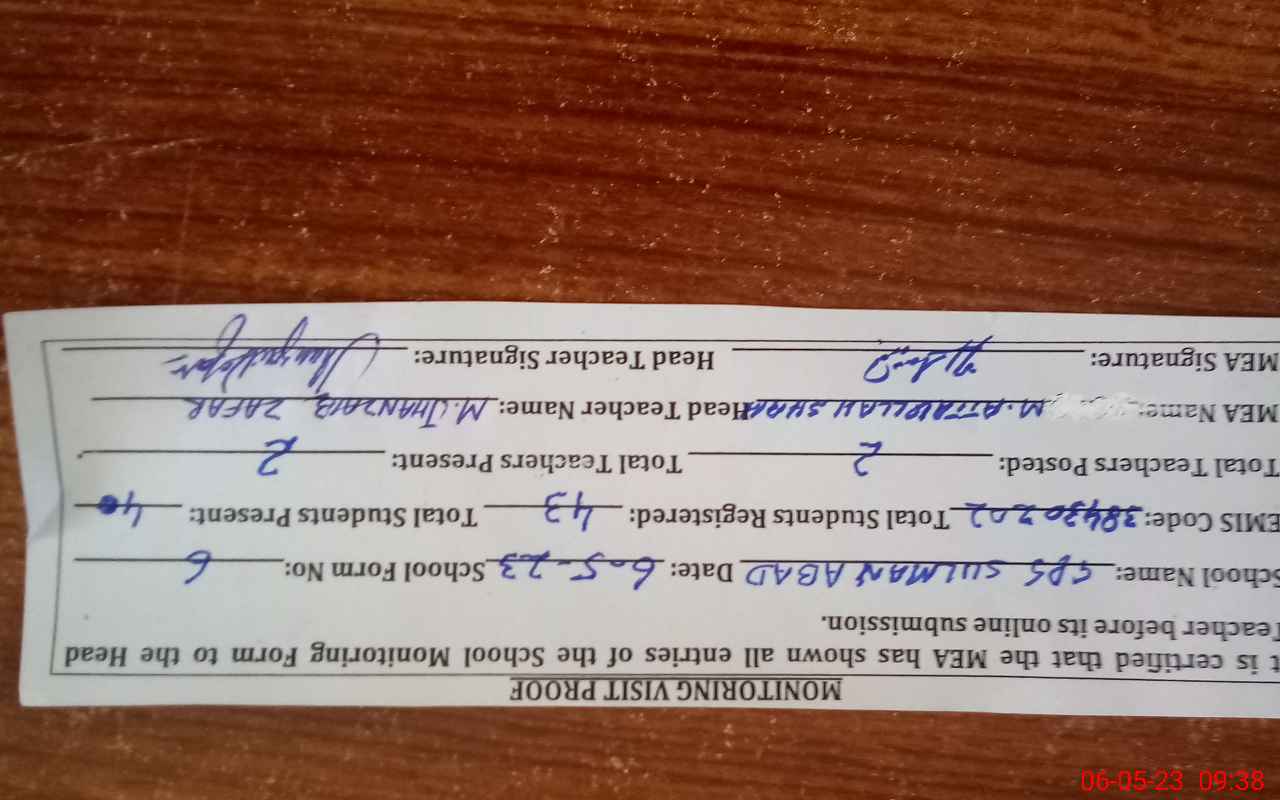 MONITORING VISIT PROOF
t is certified that the MEA has shown all entries of the School Monitoring Form to the Head
Teacher before its online submission.
School Name: GPS SULMAN ABAD Date: 6-5-23 School Form No: 6
EMIS Code: 38430202 Total Students Registered: 43 Total Students Present: 40
Total Teachers Posted: 2 Total Teachers Present: 2
MEA Name: M. ATTAULLAH SHAH Head Teacher Name: M. JHANZAIB ZAFAR
MEA Signature: Head Teacher Signature:
06-05-23 09:38